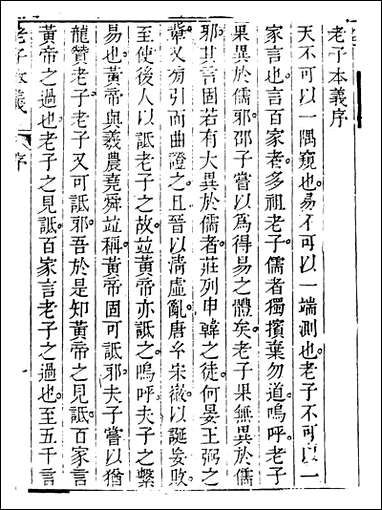 老子本義序
天不可以一隅窺也易不可以一端測也老子不可以一
家言也言百家者多祖老子儒者獨擯棄勿道嗚呼老子
果異於儒邪邵子嘗以爲得易之體矣老子果無異於儒
邪其言固若有大異於儒者莊列申韓之徒何晏王弼之
輩又翁引而曲證之且晉以清虛亂唐宋徽以誕妄敗
至使後人以詆老子之故並黃帝亦詆之嗚呼夫子之繫
易也黃帝與羲農堯舜並稱黃帝固可詆邪夫子嘗以猶
龍贊老子老子又可詆邪吾於是知黃帝之見詆百家言
黃帝之過也老子之見詆百家言老子之過也至五千言
老子本義 序